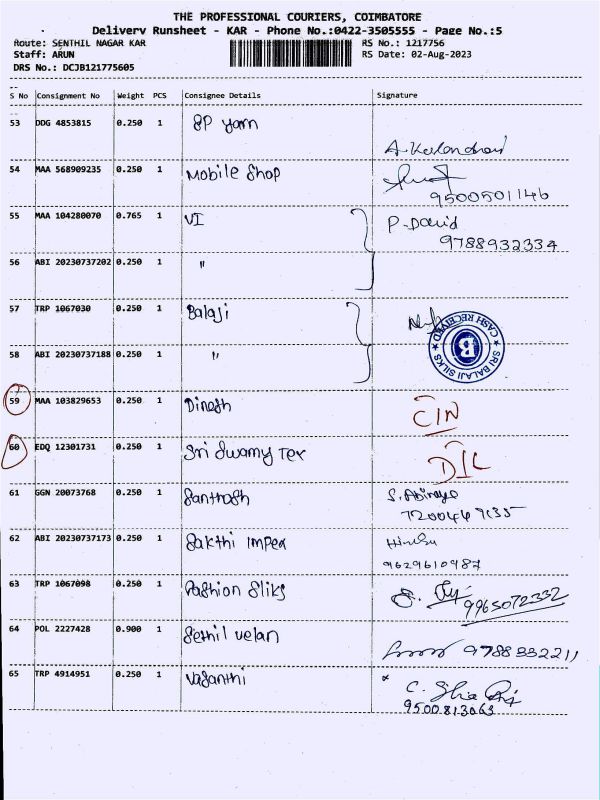 THE PROFESSIONAL COURIERS, COIMBATORE
Delivery Runsheet - KAR - Phone No.:0422-3505555 - Page No.:5
Route: SENTHIL NAGAR KAR RS No.: 1217756
Staff: ARUN RS Date: 02-Aug-2023
DRS No.: DCJB121775605
S No Consignment No Weight PCS Consignee Details Signature
53 DDG 4853815 0.250 1 SP yarn
54 MAA 568909235 0.250 1 Mobile Shop
9500501146
55 MAA 104280070 0.765 1 VI P. David
9788932334
56 ABI 20230737202 0.250 1 "
57 TRP 1067030 0.250 1 Balaji
SRI BALAJI SILKS CASH RECEIVED B
58 ABI 20230737188 0.250 1 "
59 MAA 103829653 0.250 1 Dinesh CIN
60 EDQ 12301731 0.250 1 Sri Swamy Tex DIL
61 GGN 20073768 0.250 1 Santhosh S. Abinaya
62 ABI 20230737173 0.250 1 Sakthi Impex
9629610987
63 TRP 1067098 0.250 1 Fashion Sliks
9965072332
64 POL 2227428 0.900 1 Sethil velan 9788332211
65 TRP 4914951 0.250 1 Vasanthi
9500813063